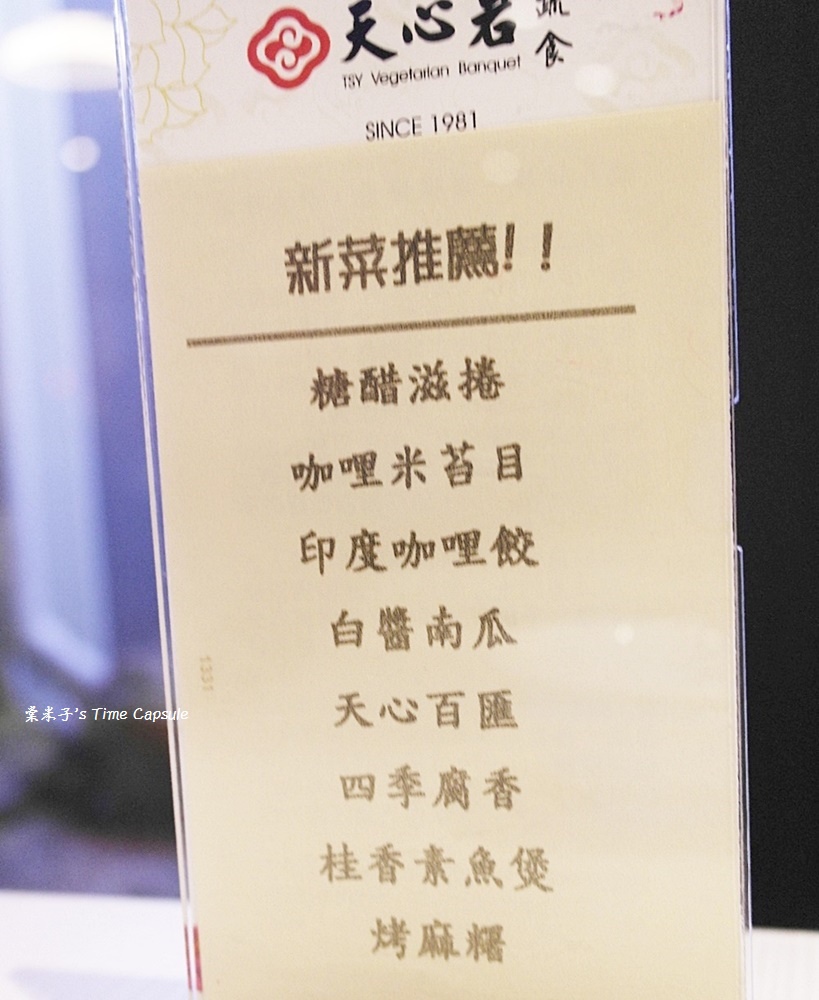 天心岩 蔬食
TSY Vegetarian Banquet
SINCE 1981
新菜推薦!!
糖醋滋捲
咖哩米苔目
印度咖哩餃
白醬南瓜
天心百匯
四季腐香
桂香素魚煲
烤麻糬
1331
棠米子's Time Capsule